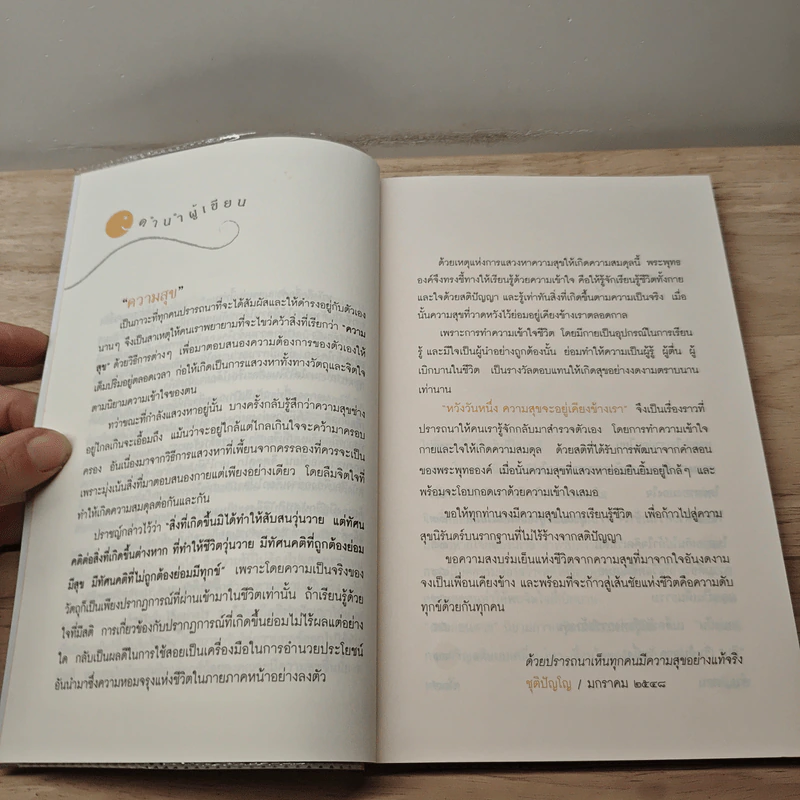 คำนำผู้เขียน
"ความสุข"
เป็นภาวะที่ทุกคนปรารถนาที่จะได้สัมผัสและให้ดำรงอยู่กับตัวเอง
นานๆ จึงเป็นสาเหตุให้คนเราพยายามที่จะไขว่คว้าสิ่งที่เรียกว่า "ความ
สุข" ด้วยวิธีการต่างๆ เพื่อมาตอบสนองความต้องการของตัวเองให้
เต็มปรี่มอยู่ตลอดเวลา ก่อให้เกิดเป็นการแสวงหาทั้งทางวัตถุและจิตใจ
ตามนิยามความเข้าใจของตน
ทว่าขณะที่กำลังแสวงหาอยู่นั้น บางครั้งกลับรู้สึกว่าความสุขช่าง
อยู่ไกลเกินจะเอื้อมถึง แม้นว่าจะอยู่ใกล้แต่ไกลเกินใจจะคว้ามาครอบ
ครอง อันเนื่องมาจากวิธีการแสวงหาที่เพี้ยนจากครรลองที่ควรจะเป็น
เพราะมุ่งเน้นสิ่งที่มาตอบสนองกายแต่เพียงอย่างเดียว โดยลืมจิตใจที่
ทำให้เกิดความสมดุลต่อกันและกัน
ปราชญ์กล่าวไว้ว่า "สิ่งที่เกิดขึ้นมิได้ทำให้สับสนวุ่นวาย แต่ทัศน
คติต่อสิ่งที่เกิดขึ้นต่างหาก ที่ทำให้ชีวิตวุ่นวาย มีทัศนคติที่ถูกต้องย่อม
มีสุข มีทัศนคติที่ไม่ถูกต้องย่อมมีทุกข์" เพราะโดยความเป็นจริงของ
วัตถุก็เป็นเพียงปรากฏการณ์ที่ผ่านเข้ามาในชีวิตเท่านั้น ถ้าเรียนรู้ด้วย
ใจที่มีสติ การเกี่ยวข้องกับปรากฏการณ์ที่เกิดขึ้นย่อมไม่ไร้ผลแต่อย่าง
ใด กลับเป็นผลดีในการใช้สอยเป็นเครื่องมือในการอำนวยประโยชน์
อันนำมาซึ่งความหอมจรุงแห่งชีวิตในภายภาคหน้าอย่างลงตัว
ด้วยเหตุแห่งการแสวงหาความสุขให้เกิดความสมดุลนี้ พระพุทธ
องค์จึงทรงชี้ทางให้เรียนรู้ด้วยความเข้าใจ คือให้รู้จักเรียนรู้ชีวิตทั้งกาย
และใจด้วยสติปัญญา และรู้เท่าทันสิ่งที่เกิดขึ้นตามความเป็นจริง เมื่อ
นั้นความสุขที่วาดหวังไว้ย่อมอยู่เคียงข้างเราตลอดกาล
เพราะการทำความเข้าใจชีวิต โดยมีกายเป็นอุปกรณ์ในการเรียน
รู้ และมีใจเป็นผู้นำอย่างถูกต้องนั้น ย่อมทำให้ความเป็นผู้รู้ ผู้ตื่น ผู้
เบิกบานในชีวิต เป็นรางวัลตอบแทนให้เกิดสุขอย่างงดงามตราบนาน
เท่านาน
"หวังวันหนึ่ง ความสุขจะอยู่เคียงข้างเรา" จึงเป็นเรื่องราวที่
ปรารถนาให้คนเรารู้จักกลับมาสำรวจตัวเอง โดยการทำความเข้าใจ
กายและใจให้เกิดความสมดุล ด้วยสติที่ได้รับการพัฒนาจากคำสอน
ของพระพุทธองค์ เมื่อนั้นความสุขที่แสวงหาย่อมยืนยิ้มอยู่ใกล้ๆ และ
พร้อมจะโอบกอดเราด้วยความเข้าใจเสมอ
ขอให้ทุกท่านจงมีความสุขในการเรียนรู้ชีวิต เพื่อก้าวไปสู่ความ
สุขนิรันดร์บนรากฐานที่ไม่ไร้ร้างจากสติปัญญา
ขอความสงบร่มเย็นแห่งชีวิตจากความสุขที่มาจากใจอันงดงาม
จงเป็นเพื่อนเคียงข้าง และพร้อมที่จะก้าวสู่เส้นชัยแห่งชีวิตคือความดับ
ทุกข์ด้วยกันทุกคน
ด้วยปรารถนาเห็นทุกคนมีความสุขอย่างแท้จริง
ชุติปัญโญ / มกราคม ๒๕๔๘